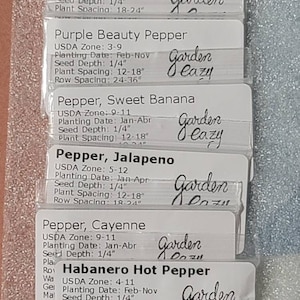 Seed Depth: 1/4"
Plant Spacing: 18-24"
Purple Beauty Pepper
USDA Zone: 3-9
Planting Date: Feb-Nov
Seed Depth: 1/4"
Plant Spacing: 12-18"
Row Spacing: 24-36"
garden
eazy
Pepper, Sweet Banana
USDA Zone: 9-11
Planting Date: Jan-Apr
Seed Depth: 1/4"
Plant Spacing: 12-18"
garden
eazy
Pepper, Jalapeno
USDA Zone: 5-12
Planting Date: Jan-Apr
Seed Depth: 1/4"
Plant Spacing: 12-18"
Row Spacing: 18-24"
garden
eazy
Pepper, Cayenne
USDA Zone: 9-11
Planting Date: Jan-Apr
Seed Depth: 1/4"
garden
eazy
Habanero Hot Pepper
USDA Zone: 4-11
Planting Date: Feb-Nov
Seed Depth: 1/4"
garden